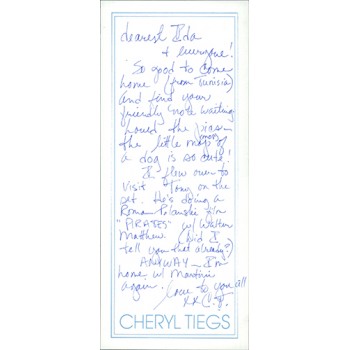 dearest Ida
+ everyone!
So good to come
home (from Tunisia)
and find your
friendly note waiting
the
the little mop of
a dog is so cute!
I flew over to
visit Tony on the
set. He's doing a
Roman Polanski film
"PIRATES" w/ Walter
Matthew. (Did I
tell you that already?)
ANYWAY - I'm
home w/ Martini
again.
Love to you all
xx C.T.
CHERYL TIEGS